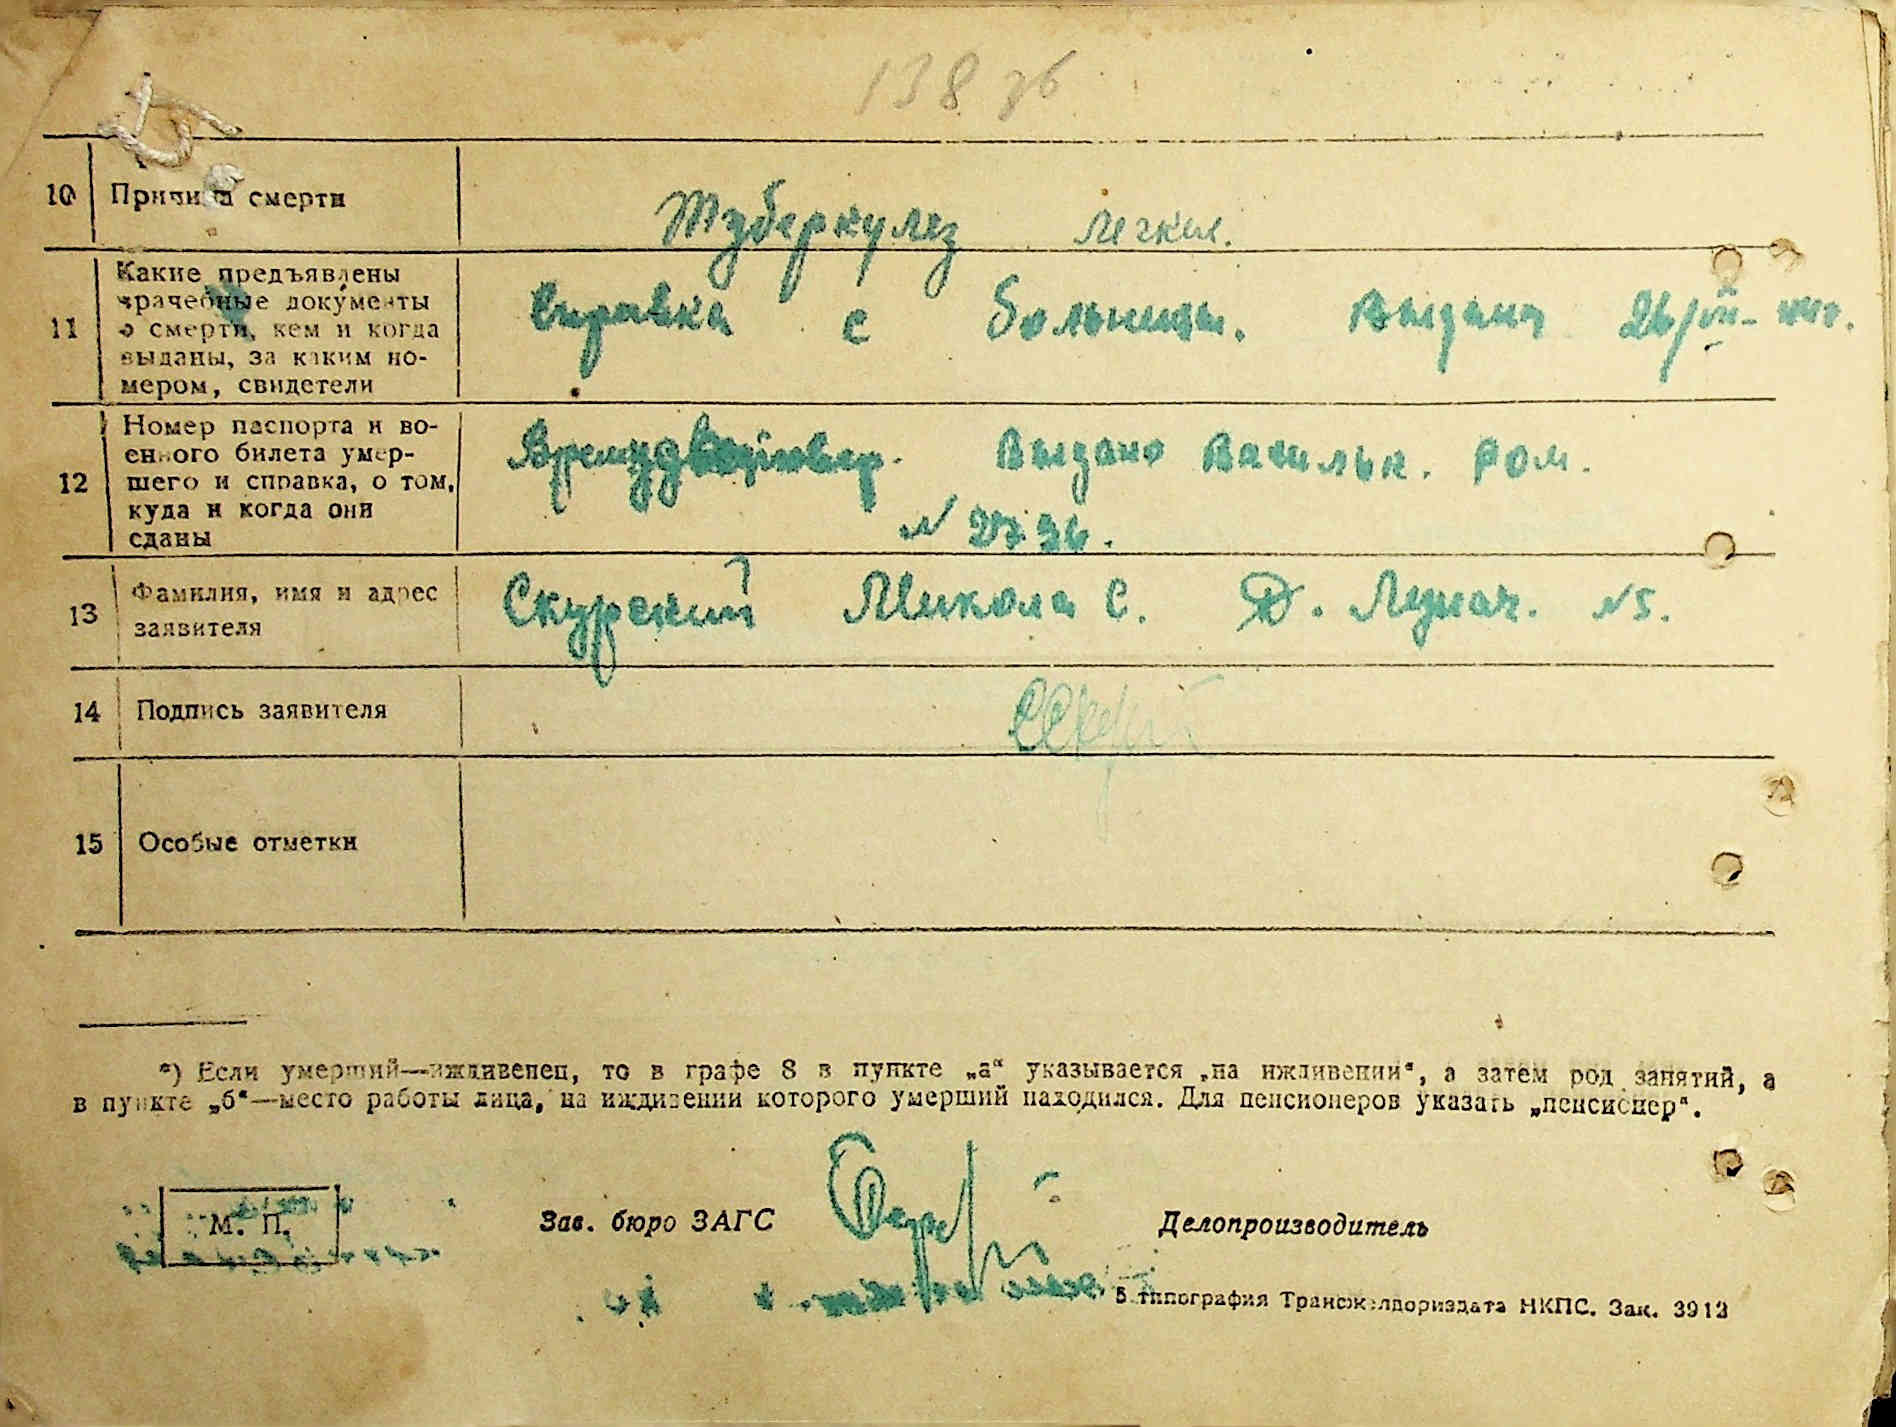 138 зб
10 Причина смерти Туберкулез легких.
11 Какие предъявлены
врачебные документы
о смерти, кем и когда
выданы, за каким но-
мером, свидетели
Справка с больницы. Выдана 26/VII-
12 Номер паспорта и во-
енного билета умер-
шего и справка, о том,
куда и когда они
сданы
Выдано Васильк. ром.
N 2736.
13 Фамилия, имя и адрес
заявителя
Скурский Микола С. Д. Лунач. N5.
14 Подпись заявителя
15 Особые отметки
*) Если умерший—иждивенец, то в графе 8 в пункте „а“ указывается „на иждивении“, а затем род занятий, а
в пункте „б“—место работы лица, на иждивении которого умерший находился. Для пенсионеров указать „пенсионер“.
М. П.
Зав. бюро ЗАГС
Делопроизводитель
5 типография Трансжелдориздата НКПС. Зак. 3913